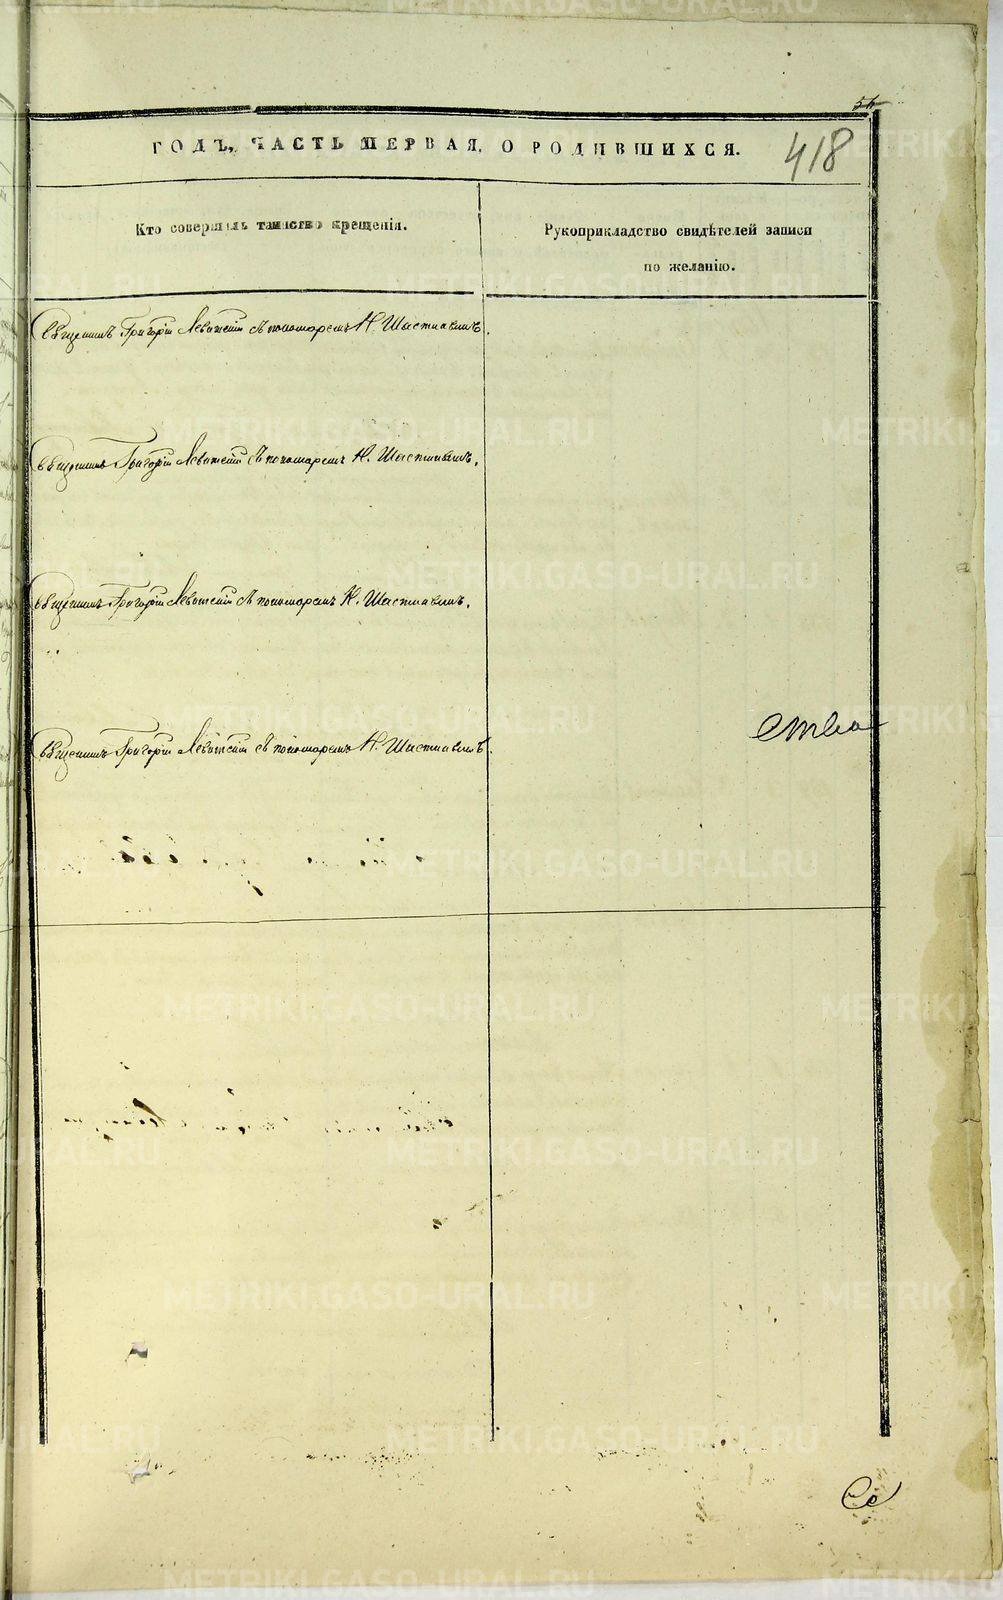 54
ГОДЪ, ЧАСТЬ ПЕРВАЯ, О РОДИВШИХСЯ.
418
Кто совершалъ таинство крещенія.
Рукоприкладство свидѣтелей записи
по желанію.
Священникъ Григорій Левитскій съ пономаремъ Н. Шастиавымъ.
Священникъ Григорій Левитскій съ пономаремъ Н. Шастиавымъ.
Священникъ Григорій Левитскій съ пономаремъ Н. Шастиавымъ.
ства
Священникъ Григорій Левитскій съ пономаремъ Н. Шастиавымъ.
METRIKI.GASO-URAL.RU